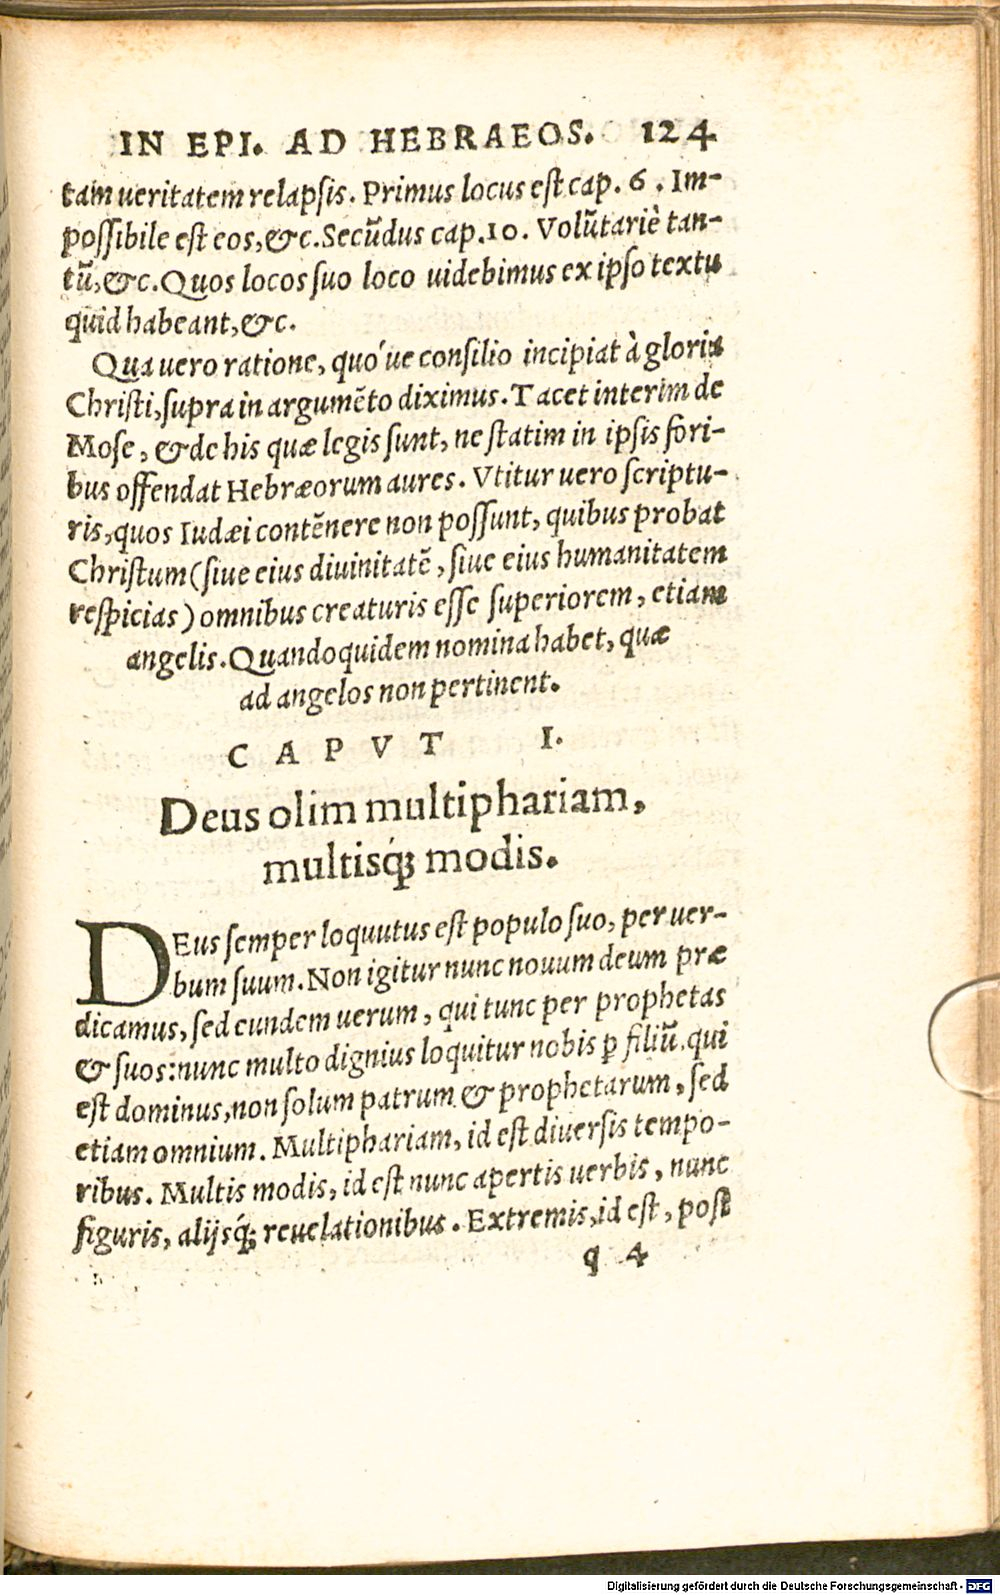 IN EPI. AD HEBRAEOS. 124
tam ueritatem relapsis. Primus locus est cap. 6. Im-
possibile est eos, &c. Secũdus cap. 10. Volũtariè tan-
tũ, &c. Quos locos suo loco uidebimus ex ipso textu
quid habeant, &c.
Qua uero ratione, quóue consilio incipiat à gloria
Christi, supra in argumẽto diximus. Tacet interim de
Mose, & de his quæ legis sunt, ne statim in ipsis fori-
bus offendat Hebræorum aures. Vtitur uero scriptu-
ris, quos Iudæi contẽnere non possunt, quibus probat
Christum (siue eius diuinitatẽ, siue eius humanitatem
respicias) omnibus creaturis esse superiorem, etiam
angelis. Quandoquidem nomina habet, quæ
ad angelos non pertinent.
CAPVT I.
Deus olim multiphariam,
multisq́ue modis.
DEus semper loquutus est populo suo, per uer-
bum suum. Non igitur nunc nouum deum præ
dicamus, sed eundem uerum, qui tunc per prophetas
& suos: nunc multo dignius loquitur nobis ꝑ filiũ, qui
est dominus, non solum patrum & prophetarum, sed
etiam omnium. Multiphariam, id est diuersis tempo-
ribus. Multis modis, id est nunc apertis uerbis, nunc
figuris, alijsq́ue reuelationibus. Extremis, id est, post
q 4
Digitalisierung gefördert durch die Deutsche Forschungsgemeinschaft - DFG